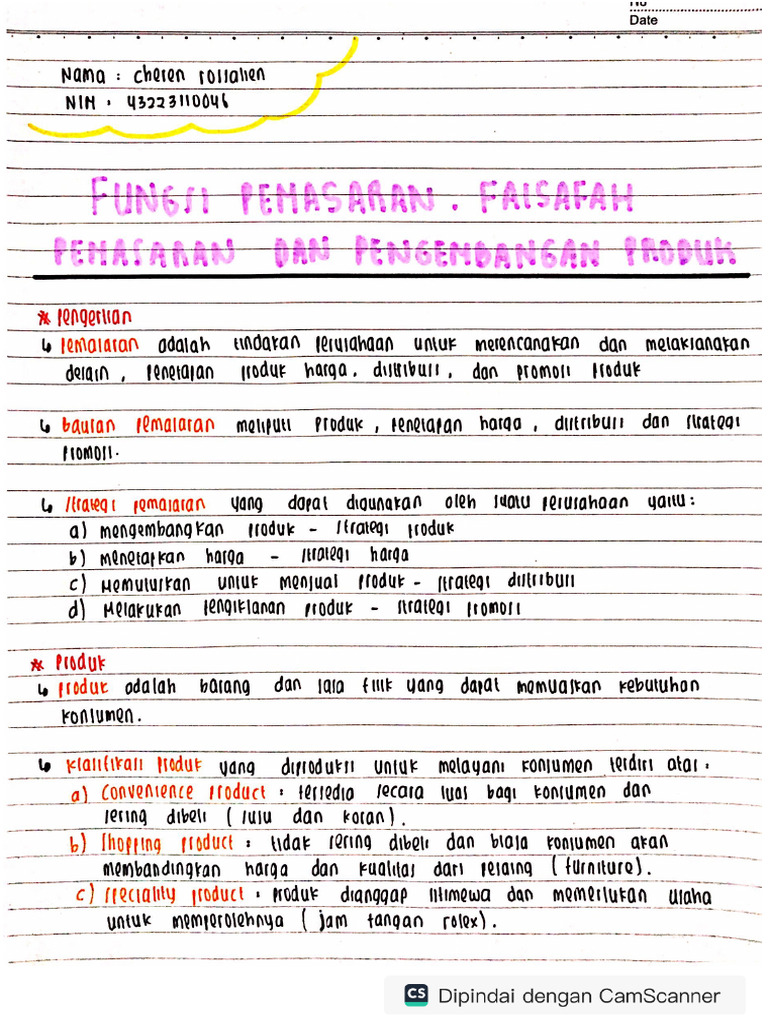 No
Date
Nama : Cheren rossalien
NIM : 43223110046
FUNGSI PEMASARAN, FALSAFAH
PEMASARAN DAN PENGEMBANGAN PRODUK
* Pengertian
↳ Pemasaran adalah tindakan perusahaan untuk merencanakan dan melaksanakan
desain, penetapan produk harga, distribusi, dan promosi produk
↳ bauran pemasaran meliputi produk, penetapan harga, distribusi dan strategi
promosi.
↳ Strategi pemasaran yang dapat digunakan oleh suatu perusahaan yaitu:
a) mengembangkan produk - strategi produk
b) menetapkan harga - strategi harga
c) Memutuskan untuk menjual produk - strategi distribusi
d) Melakukan pengiklanan produk - strategi promosi
* Produk
↳ produk adalah barang dan jasa fisik yang dapat memuaskan kebutuhan
konsumen.
↳ Klasifikasi produk yang diproduksi untuk melayani konsumen terdiri atas:
a) Convenience product : tersedia secara luas bagi konsumen dan
sering dibeli (susu dan koran).
b) Shopping product : tidak sering dibeli dan biasa konsumen akan
membandingkan harga dan kualitas dari pesaing (furniture).
c) Speciality product : produk dianggap istimewa dan memerlukan usaha
untuk memperolehnya (jam tangan rolex).
CS Dipindai dengan CamScanner